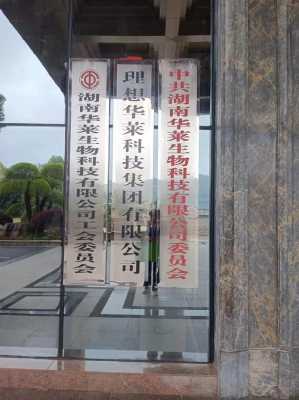 湖南华莱生物科技有限公司工会委员会
理想华莱科技集团有限公司
中共湖南华莱生物科技有限公司委员会